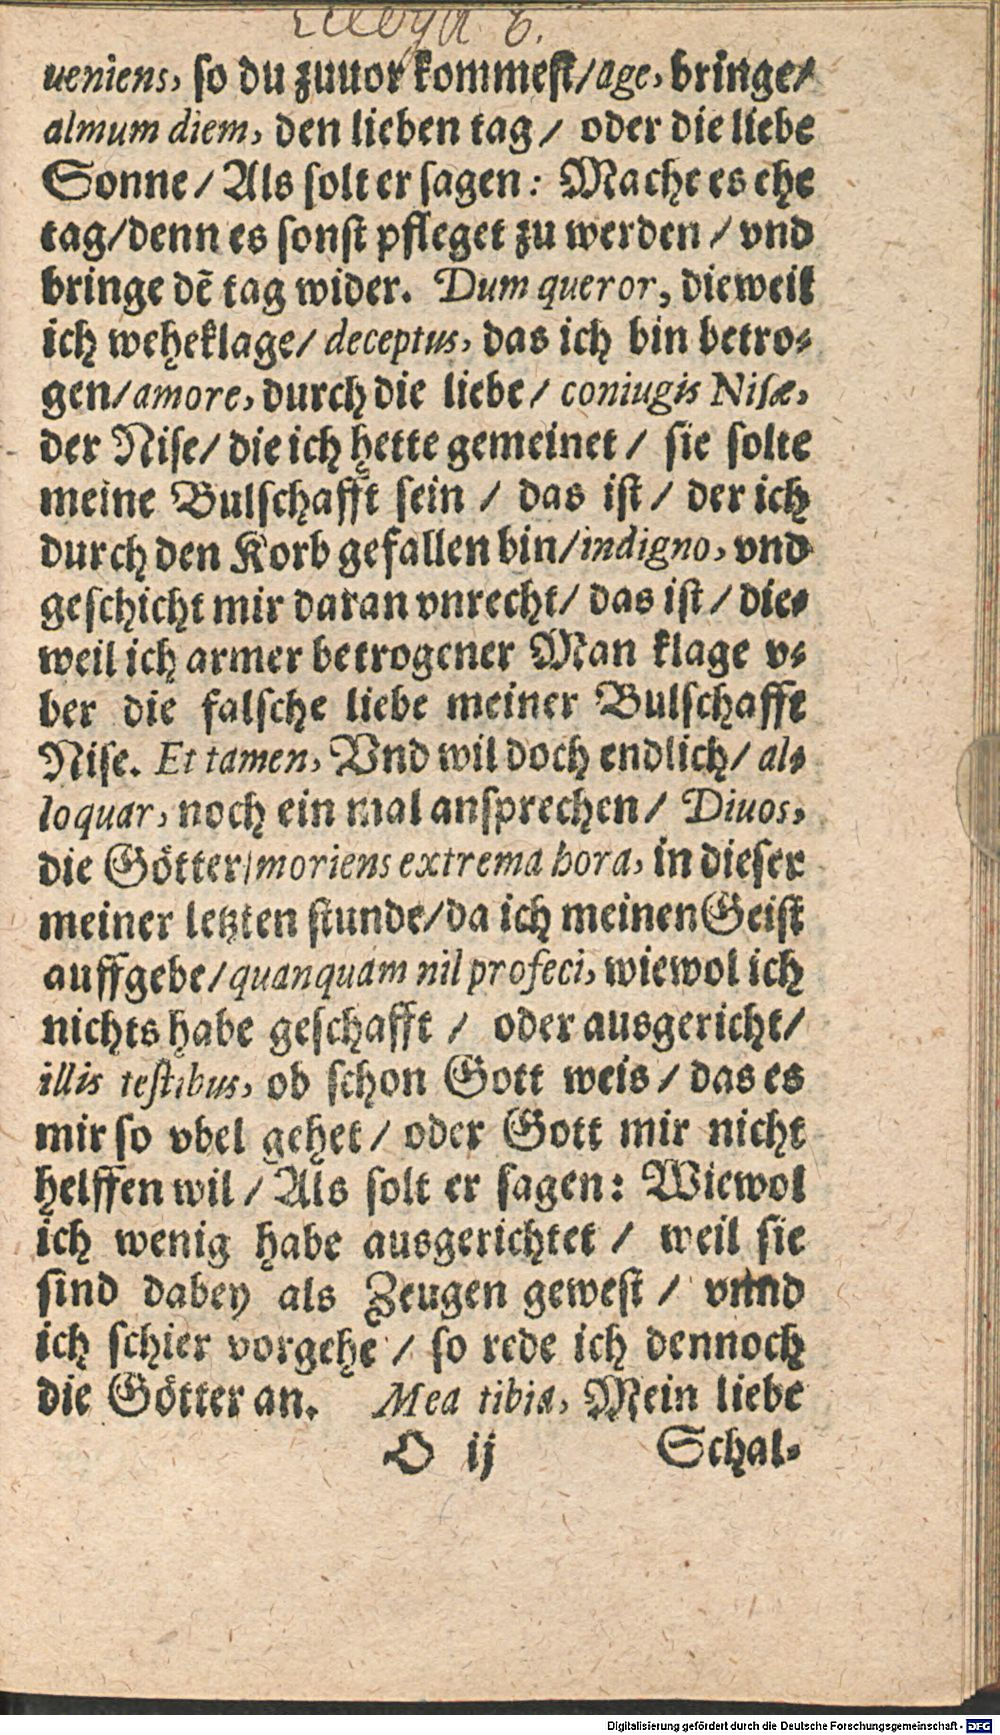 ueniens, so du zuuor kommest/ age, bringe/
almum diem, den lieben tag/ oder die liebe
Sonne/ Als solt er sagen: Mache es ehe
tag/ denn es sonst pfleget zu werden/ vnd
bringe dẽ tag wider. Dum queror, dieweil
ich weheklage/ deceptus, das ich bin betro-
gen/ amore, durch die liebe/ coniugis Nisæ,
der Nise/ die ich hette gemeinet/ sie solte
meine Bulschafft sein/ das ist/ der ich
durch den Korb gefallen bin/ indigno, vnd
geschicht mir daran vnrecht/ das ist/ die-
weil ich armer betrogener Man klage v-
ber die falsche liebe meiner Bulschafft
Nise. Et tamen, Vnd wil doch endlich/ al-
loquar, noch ein mal ansprechen/ Diuos,
die Götter/ moriens extrema hora, in dieser
meiner letzten stunde/ da ich meinen Geist
auffgebe/ quanquam nil profeci, wiewol ich
nichts habe geschafft/ oder ausgericht/
illis testibus, ob schon Gott weis/ das es
mir so vbel gehet/ oder Gott mir nicht
helffen wil/ Als solt er sagen: Wiewol
ich wenig habe ausgerichtet/ weil sie
sind dabey als Zeugen gewest/ vnnd
ich schier vorgehe/ so rede ich dennoch
die Götter an. Mea tibia, Mein liebe
O ij Schal-
Digitalisierung gefördert durch die Deutsche Forschungsgemeinschaft - DFG